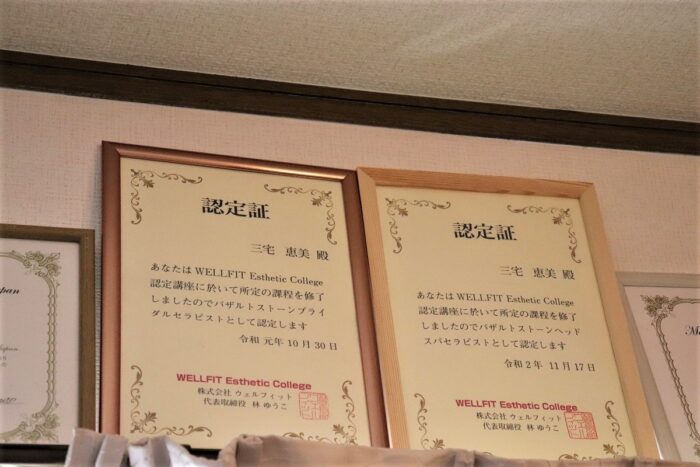 認定証
三宅 恵美 殿
あなたは WELLFIT Esthetic College
認定講座に於いて所定の課程を修了
しましたのでバザルトストーンブライ
ダルセラピストとして認定します
令和 元年 10 月 30 日
WELLFIT Esthetic College
株式会社 ウェルフィット
代表取締役 林 ゆうこ
認定証
三宅 恵美 殿
あなたは WELLFIT Esthetic College
認定講座に於いて所定の課程を修了
しましたのでバザルトストーンヘッド
スパセラピストとして認定します
令和 2 年 11 月 17 日
WELLFIT Esthetic College
株式会社 ウェルフィット
代表取締役 林 ゆうこ